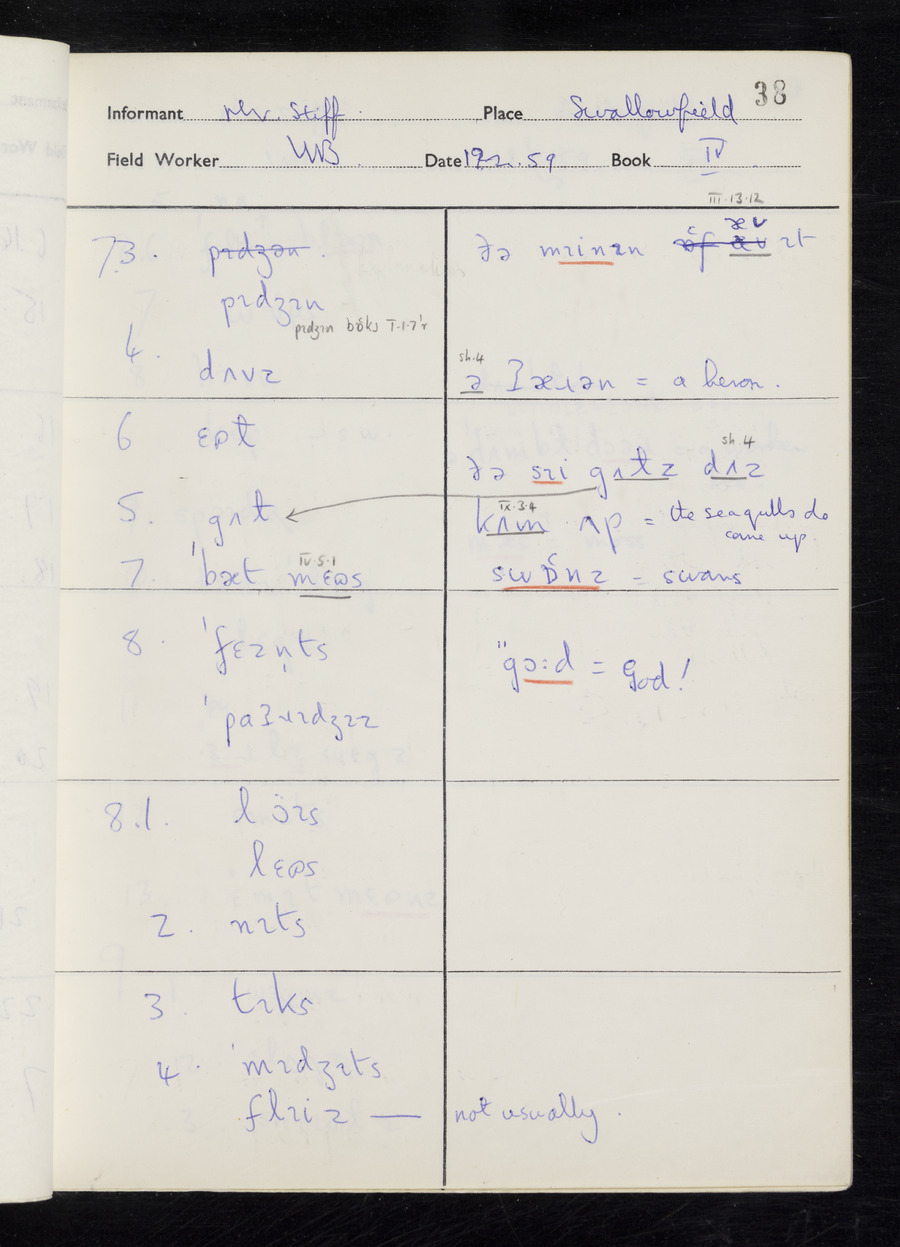 38
Informant Mr. Stiff Place Swallowfield
Field Worker WB Date 19.2.59 Book IV
III.13.12
73. pɪdʒən
pɪdʒɪn
pɪdʒɪn bɒks I.1.7'r
4. dʌvz
6 ɛət
5. gʌɫ
7. 'bæt mɛəs
IV.5.1
8. 'fɛzn̩ts
'paʔɹɪdʒɪz
8.1. lɔ̈ɪs
lɛəs
2. nɪts
3. tɪks
4. 'mɪdʒɪts
flɪiz —
ðə mɪinɪn ɒf æv ɪt
æv
sh.4
ə ʔæɹən = a heron.
sh.4
ðə sɪi gʌɫz dʌz
IX.3.4
kʌm ʌp = the seagulls do
come up.
swɒnz = swans
"gɔ:d = God!
not usually.